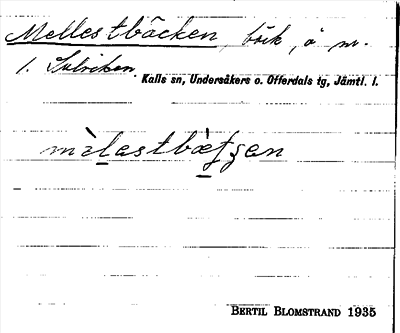 Mellestbäcken, bäck, å n.
l. Sulviken.
Kalls sn, Undersåkers o. Offerdals tg, Jämtl. l.
mı̀lastbæ̀tʃen
BERTIL BLOMSTRAND 1935